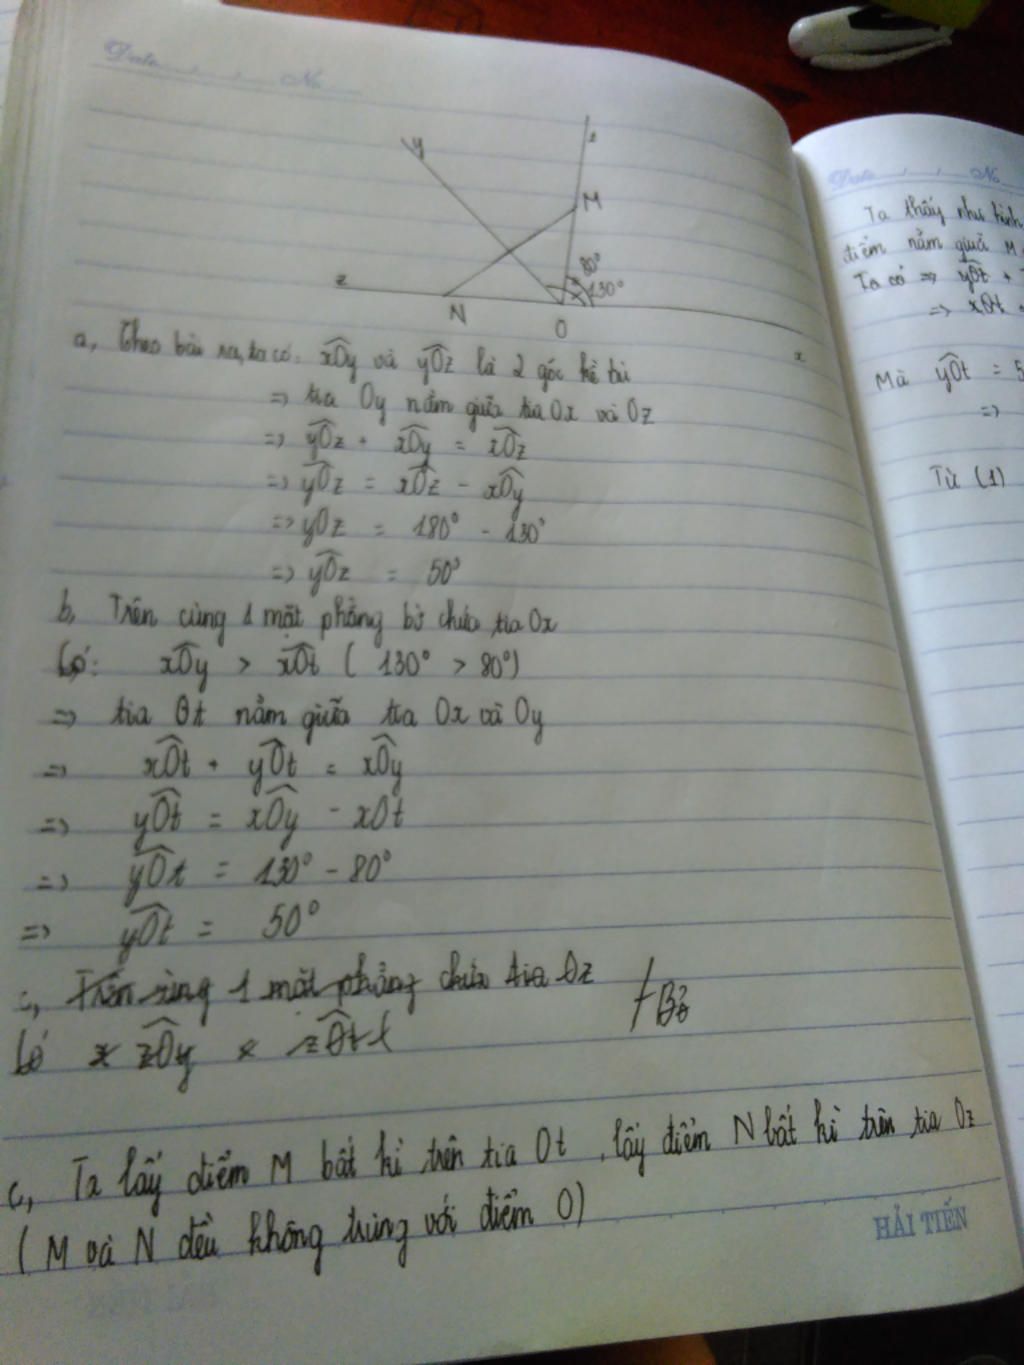 Date No
y
t
M
80°
130°
z
N
O
x
a, Theo bài ra, ta có: xOy và yOz là 2 góc kề bù
=> tia Oy nằm giữa tia Ox và Oz
=> yOz + xOy = xOz
=> yOz = xOz - xOy
=> yOz = 180° - 130°
=> yOz = 50°
b, Trên cùng 1 mặt phẳng bờ chứa tia Ox
Có: xOy > xOt ( 130° > 80°)
=> tia Ot nằm giữa tia Ox và Oy
=> xOt + yOt = xOy
=> yOt = xOy - xOt
=> yOt = 130° - 80°
=> yOt = 50°
c, Trên cùng 1 mặt phẳng chứa tia Oz
Có zOy < zOt
c, Ta lấy điểm M bất kì trên tia Ot , lấy điểm N bất kì trên tia Oz
( M và N đều không trùng với điểm O)
HẢI TIẾN
Date No
Ta thấy như hình
điểm nằm giữa M
Ta có => yOt +
=> xOt
Mà yOt = 5
=>
Từ (1)